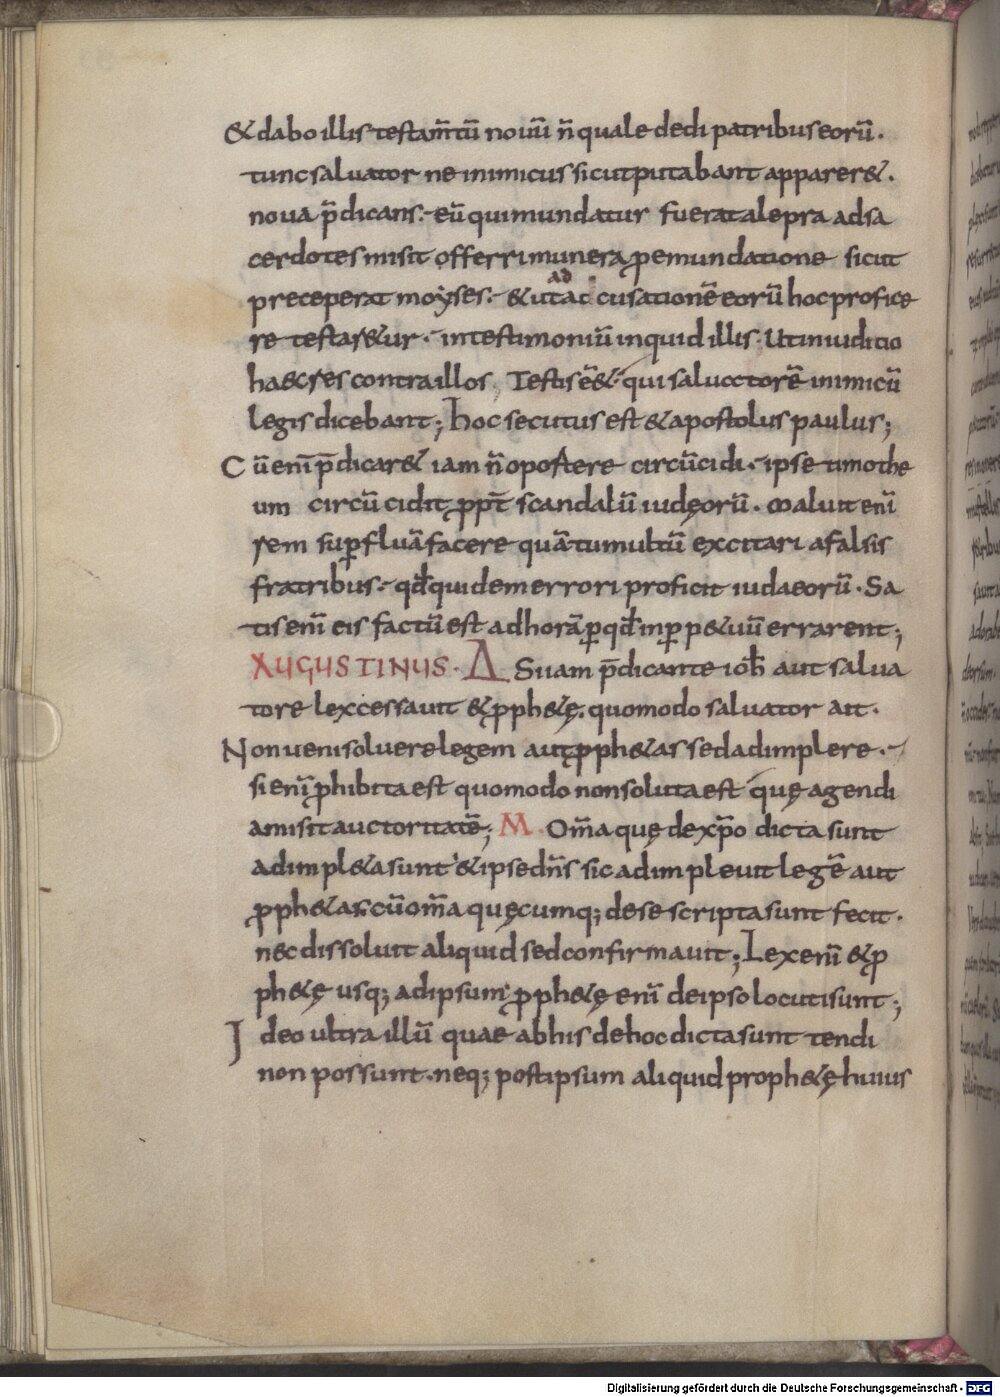 & dabo illis testam̄tū nouū n̄ quale dedi patribus eorū.
tunc saluator ne inimicus sicut putabant apparer&.
noua p̄dicans. eū qui mundatur fuerat a lepra ad sa
cerdotes misit offerri munera ꝓ emundatione sicut
preceperat moyses. & ut ad
accusationē eorū hoc profice
re testar&ur. in testimoniū inquid illis. Ut in iuditio
haec res contra illos Testis ē& qui saluatorē inimicū
legis dicebant; hoc secutus est & apostolus paulus;
Cū enī p̄dicar& iam n̄ oportere circūcidi. ipse timothe
um circūcidit ꝓpt̄ scandalū iudęorū. maluit enī
rem suꝑfluā facere quā tumultū excitari a falsis
fratribus. qđ quidem errori proficit iudaeorū. Sa
tis enī eis factū est ad horā ꝑ qđ in ꝑp&uū errarent;
AUGUSTINUS. Δ Si iam p̄dicante ioħ aut salua
tore lex cessauit & ꝓph&ę. quomodo saluator ait.
Non ueni soluere legem aut ꝓph&as sed adimplere.
si enī ꝓhibita est quomodo non soluta est quę agendi
amisit auctoritatē; M. Om̄a quę de xp̄o dicta sunt
adimpl&a sunt & ipse dn̄s sic adimpleuit legē aut
ꝓph&as. cū om̄a quęcumq; de se scripta sunt fecit.
nec dissoluit aliquid sed confirmauit; Lex enī & ꝓ
ph&ę usq; ad ipsum ꝓph&ę enī de ipso locuti sunt;
Ideo ultra illū quae ab his de hoc dicta sunt tendi
non possunt. neq; post ipsum aliquid proph&ę huius
Digitalisierung gefördert durch die Deutsche Forschungsgemeinschaft - DFG